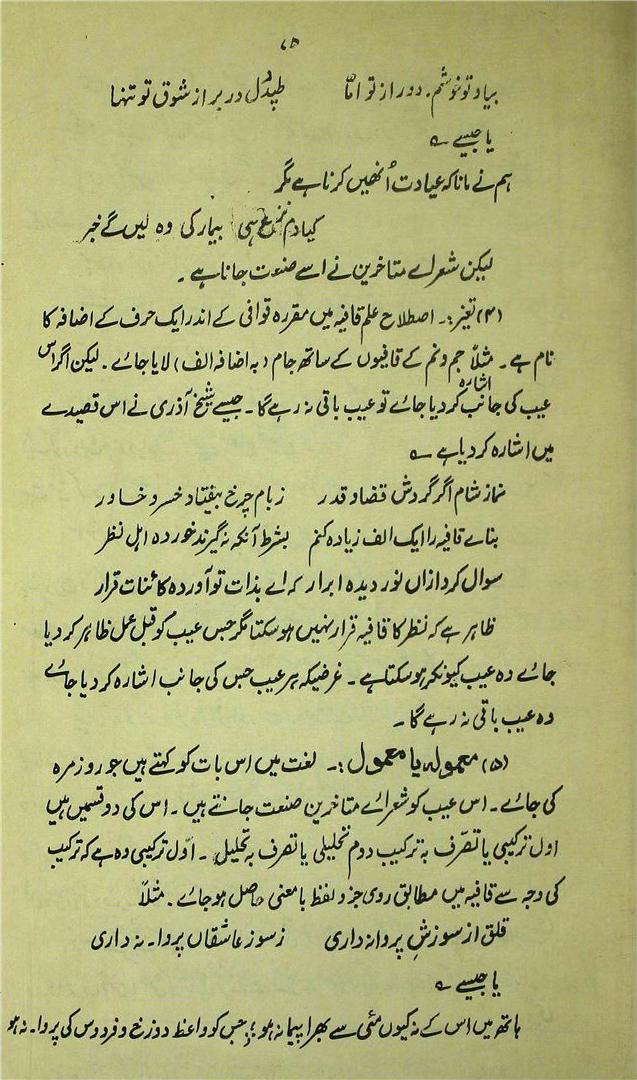 ۷۵
بیاد تو خوشم. دور از تو امّا طپد دل در بر از شوق تو تنہا
یا جیسے ؎
ہم نے مانا کہ عیادت اُنھیں کرنا ہے مگر
کیا دم نزع ہی بیمار کی وہ لیں گے خبر
لیکن شعراے متاخرین نے اسے صنعت جانا ہے ۔
(۴) تغیر:۔ اصطلاح علم قافیہ میں مقررہ قوافی کے اندر ایک حرف کے اضافہ کا
نام ہے ۔ مثلاً جم و نم کے قافیوں کے ساتھ جام (بہ اضافہ الف) لایا جاۓ ۔ لیکن اگر اس
عیب کی جانب اشارہ کر دیا جاۓ تو عیب باقی نہ رہے گا ۔ جیسے شیخ آذری نے اس قصیدے
میں اشارہ کر دیا ہے ؎
نماز شام اگر گردش قضا و قدر زبام چرخ بیفتاد خسرو خاور
بناے قافیہ را ایک الف زیادہ کنم بشرط آنکہ نہ گیرند خوردہ اہل نظر
سوال کرد ازاں نور دیدہ ابرار کہ اے بذات تو آوردہ کائنات قرار
ظاہر ہے کہ نظر کا قافیہ قرار نہیں ہو سکتا مگر جس عیب کو قبل عمل ظاہر کر دیا
جاۓ وہ عیب کیونکر ہو سکتا ہے ۔ غرضیکہ ہر عیب جس کی جانب اشارہ کر دیا جاۓ
وہ عیب باقی نہ رہے گا ۔
(۵) معمولہ یا معمول :۔ لغت میں اس بات کو کہتے ہیں جو روزمرہ
کی جاۓ ۔ اس عیب کو شعراۓ متاخرین صنعت جانتے ہیں ۔ اس کی دو قسمیں ہیں
اول ترکیبی یا تصّرف بہ ترکیب دوم تحلیلی یا تصرف بہ تحلیل ۔ اوّل ترکیبی وہ ہے کہ ترکیب
کی وجہ سے قافیہ میں مطابق روی جزو لفظ با معنی حاصل ہو جاۓ ۔ مثلاً
قلق از سوزشِ پروانہ داری ز سوز عاشقاں پروا ۔ نہ داری
یا جیسے ؎
ہاتھ میں اس کے نہ کیوں مئی سے بھرا پیمانہ ہو ؛ جس کو واعظ دوزخ و فردوس کی پروا ۔ نہ ہو